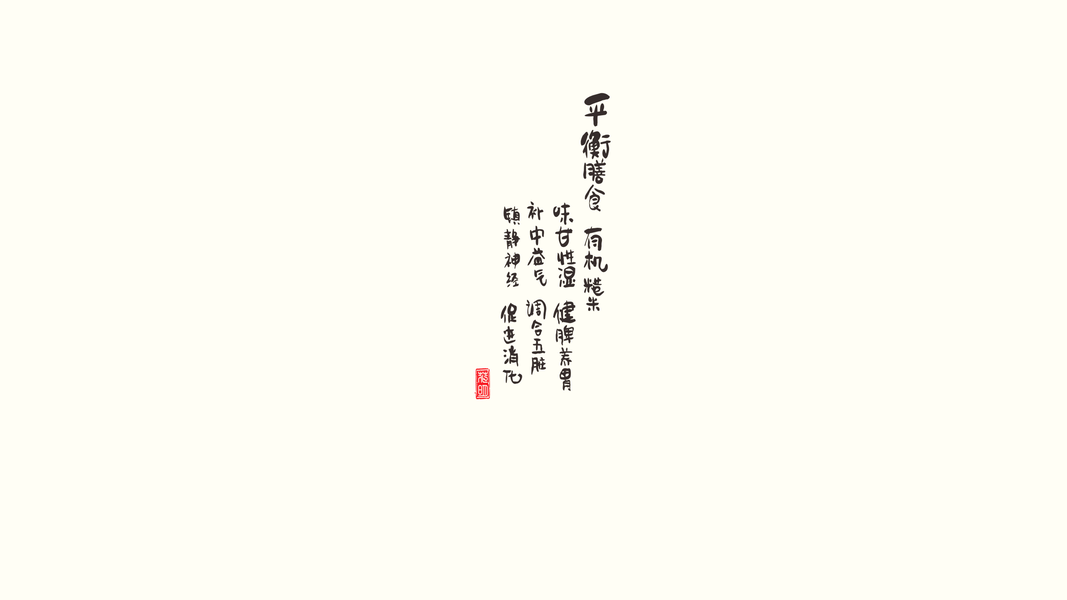 平衡膳食 有机糙米
味甘性湿 健脾养胃
补中益气 调合五脏
镇静神经 促进消化